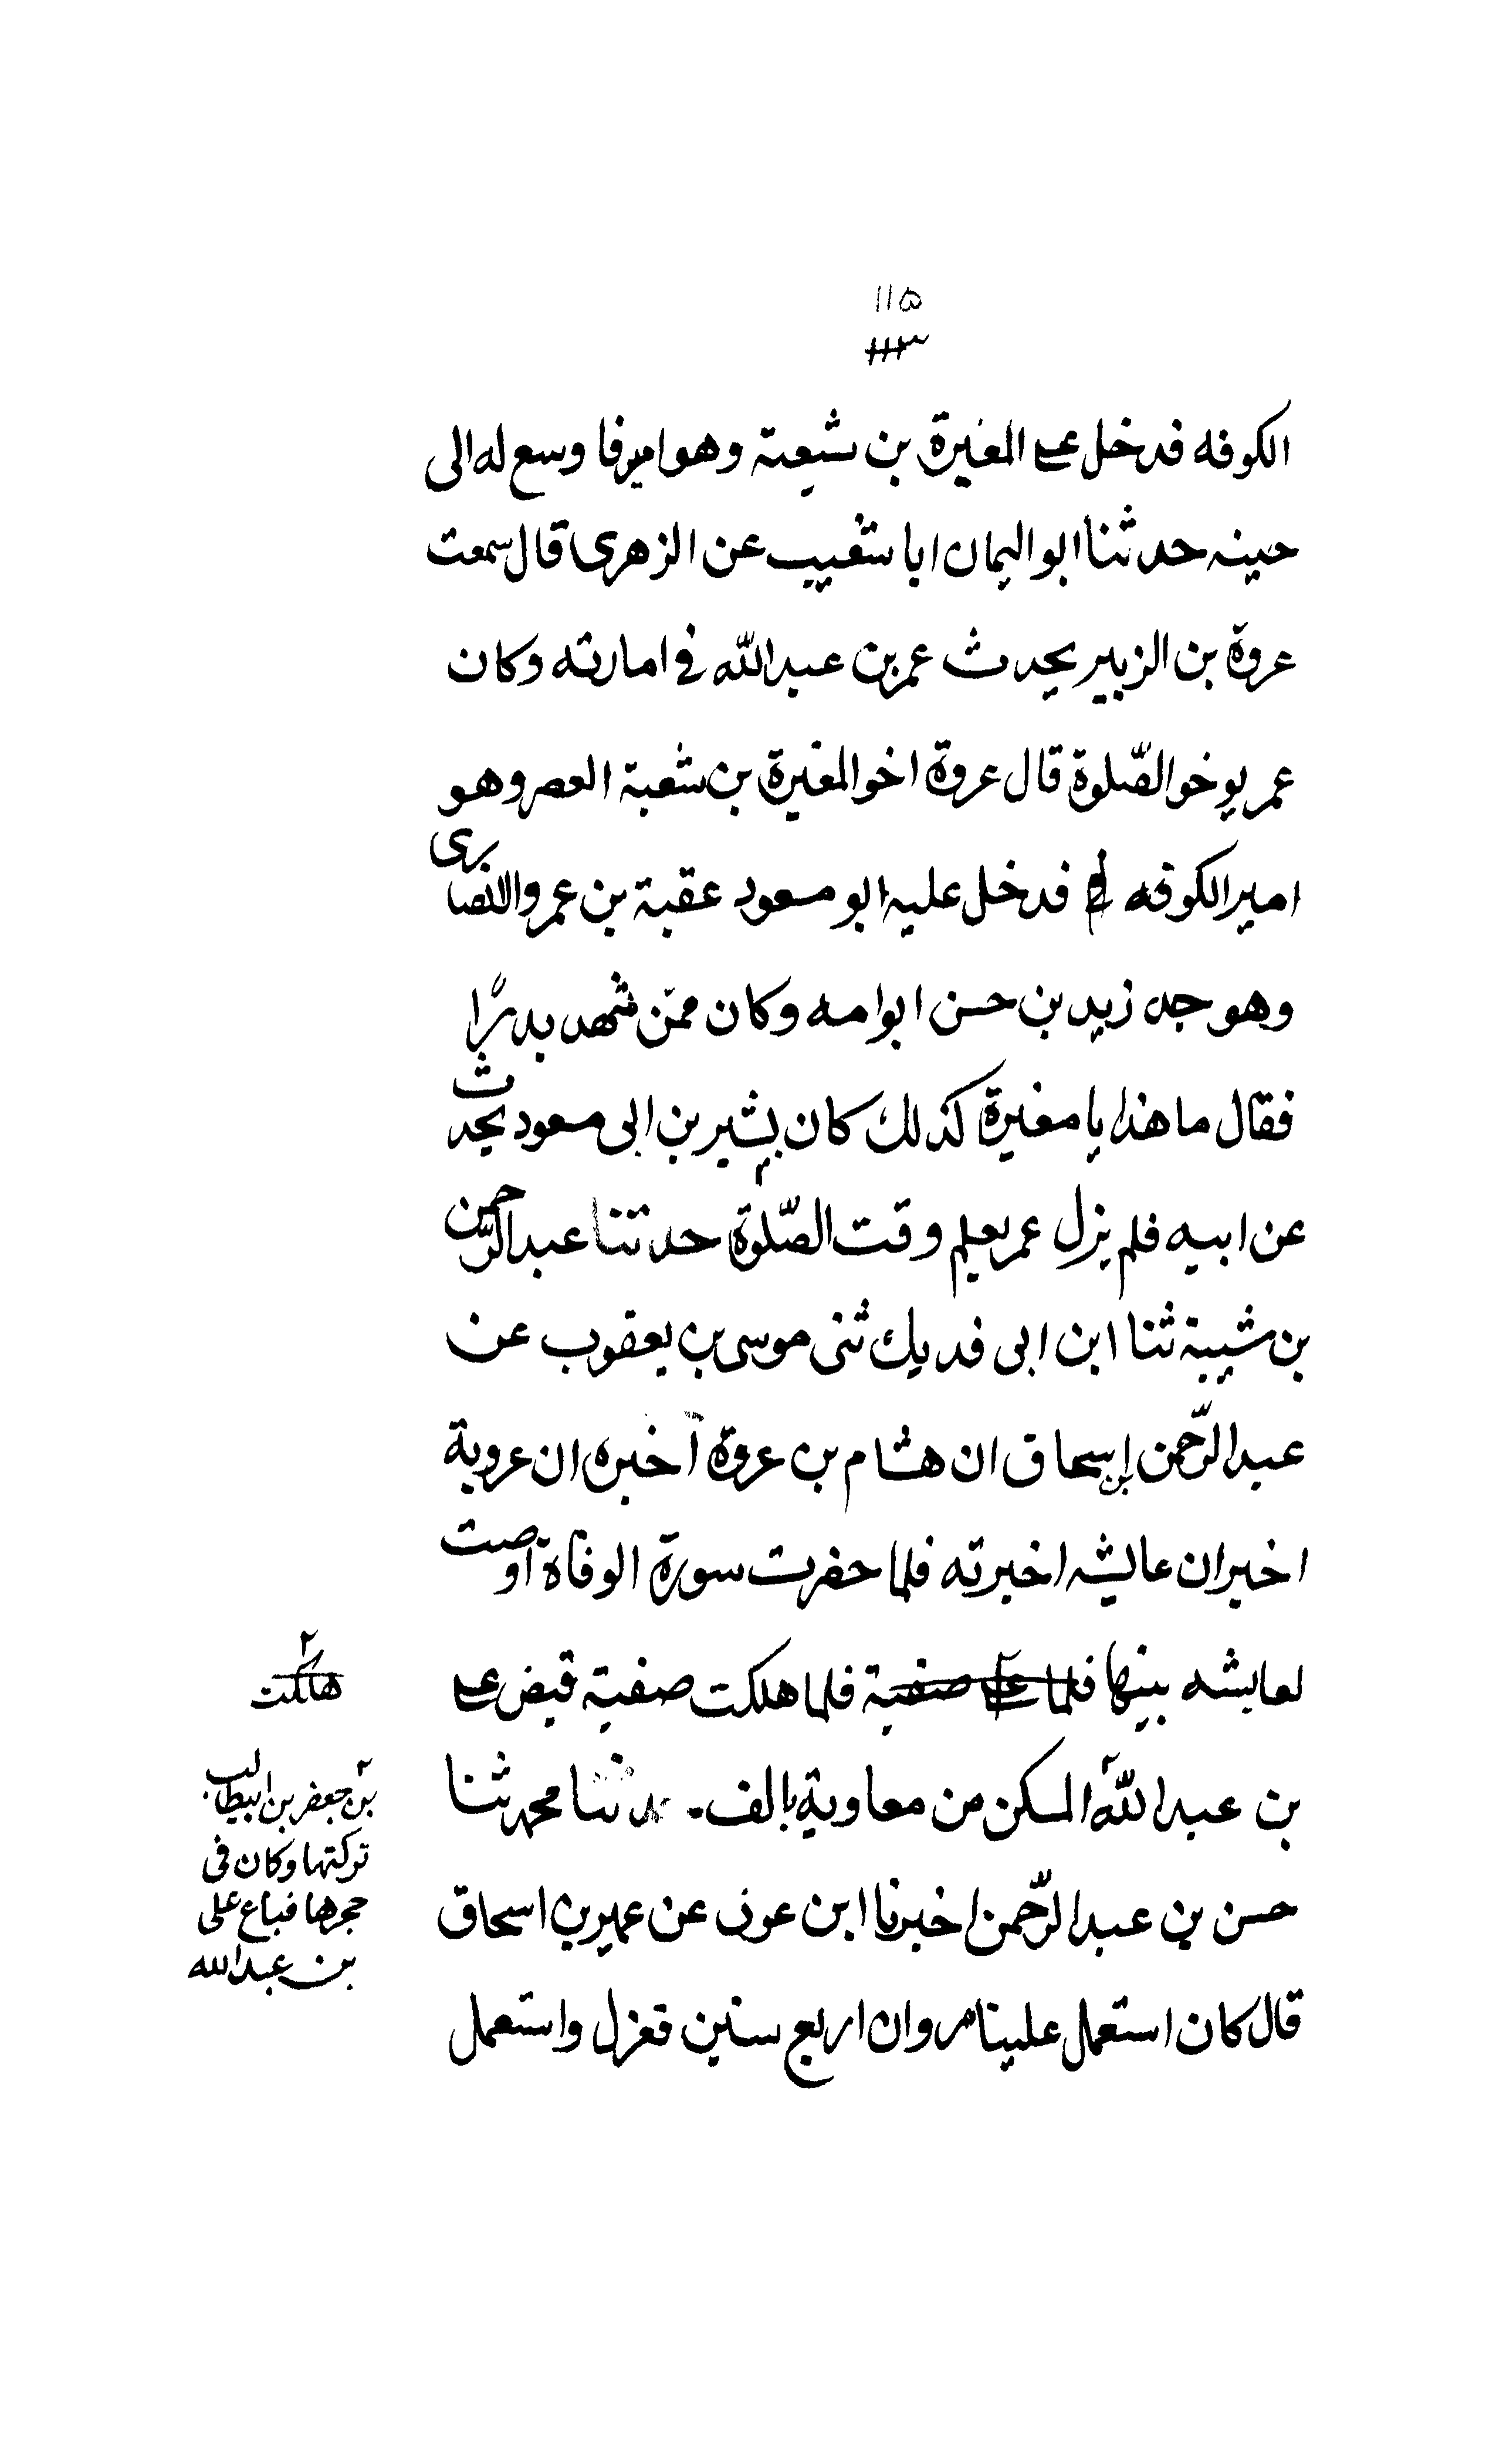 ١١٥
١١٣
الكوفه فدخل على المغيرة بن شعبة وهو امير فا وسع له الى
حينه حدثنا ابو اليمان ابا شعيب عن الزهرى قال سمعت
عروة بن الزبير يحدث عمر بن عبد الله في امارته وكان
عمر يوخو الصّلوة قال عروة اخو المغيرة بن شعبة العصر وهو
امير الكوفه فدخل عليه ابو مسعود عقبة بن عمرو الانصارى
وهو جد زيد بن حسن ابو امه وكان ممّن شهد بدرًا
فقال ما هذا يا مغيرة كذلك كان بشير بن ابى مسعود يحدث
عن ابيه فلم يزل عمر يعلم وقت الصّلوة حدثنا عبد الرّحمن
بن شيبة ثنا ابن ابى فديك ثنى موسى بن يعقوب عن
عبد الرّحمن بن اسحاق ان هشام بن عروة اخبره ان عروية
اخبر ان عايشه اخبرته فلما حضرت سورة الوفاة اوصت
لعايشه بينها فلما على صفية فلما هلكت صفية قبض على
بن عبد اللّه المسكن من معاوية بالف. حدثنا محمد ثنا
حسن بن عبد الرّحمن اخبرنا ابن عون عن عمير بن اسحاق
قال كان استعمل علينا مروان اربع سنين فعزل واستعمل
هلكت
بن جعفر بن ابيطالب
تركتها وكان فى
حجرها فباع على
بن عبد الله